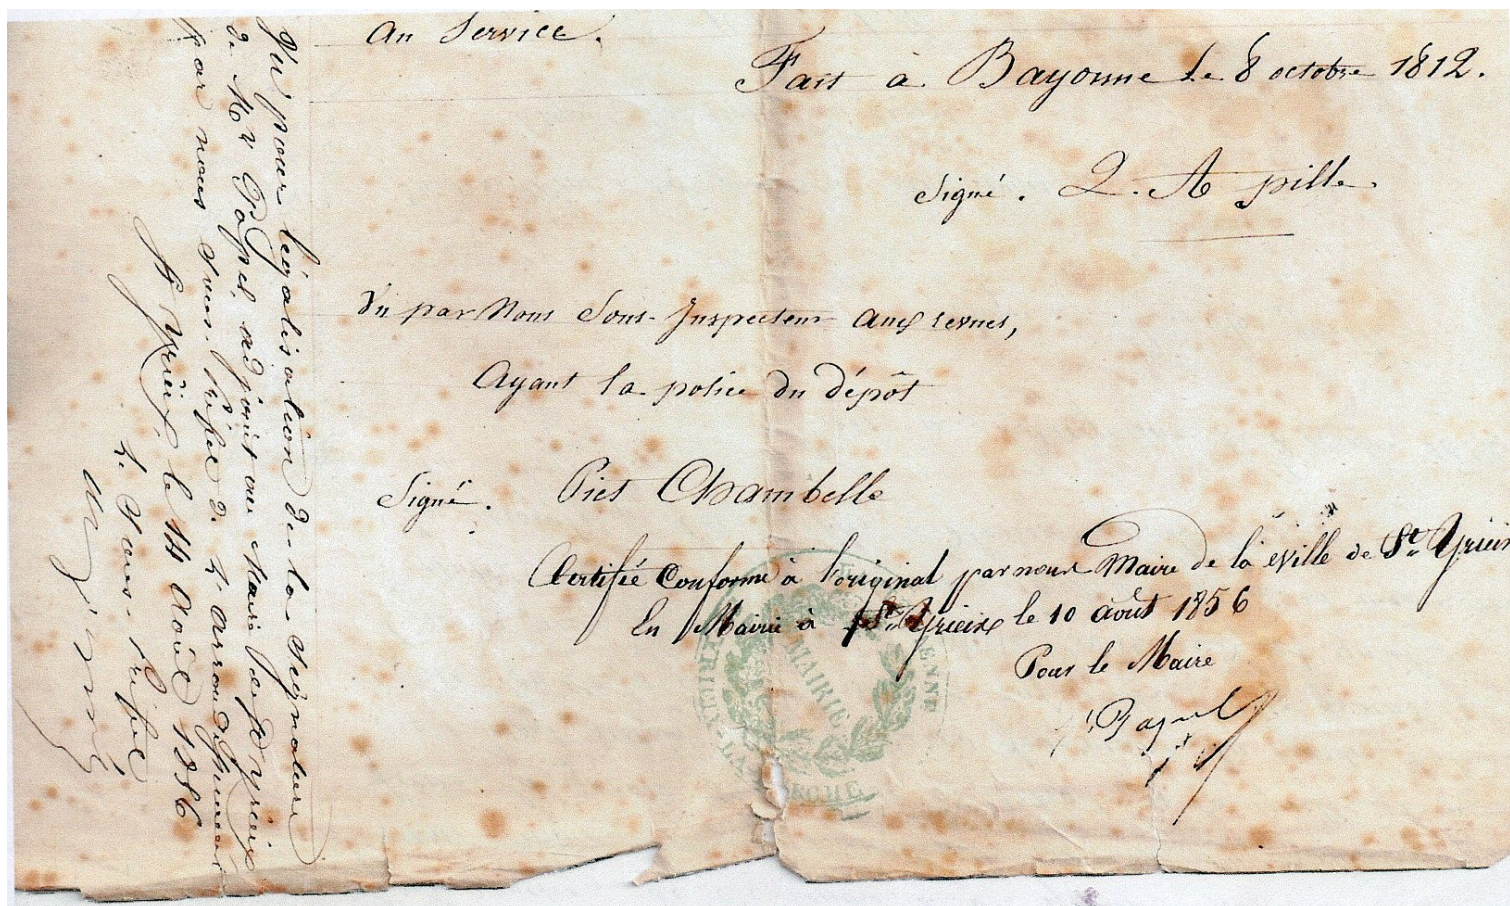 au Service.
Fait à Bayonne le 8 octobre 1812.
Signé. L. A pille
Vu par Nous Sous-Inspecteur aux revues,
Ayant la police du dépôt
Signé. Piet Chambelle
Certifée conforme à l'original par nous Maire de la Ville de St Yrieix
En Mairie à St Yrieix le 10 août 1856
Pour le Maire
MAIRIE
YRIEIX-LA-PERCHE
Vu pour légalisation de la signature
de Mr Paquel adjoint au Maire de St Yrieix
par nous sous-préfet de l'arrondissement
St Yrieix, le 14 août 1856
Le sous-préfet